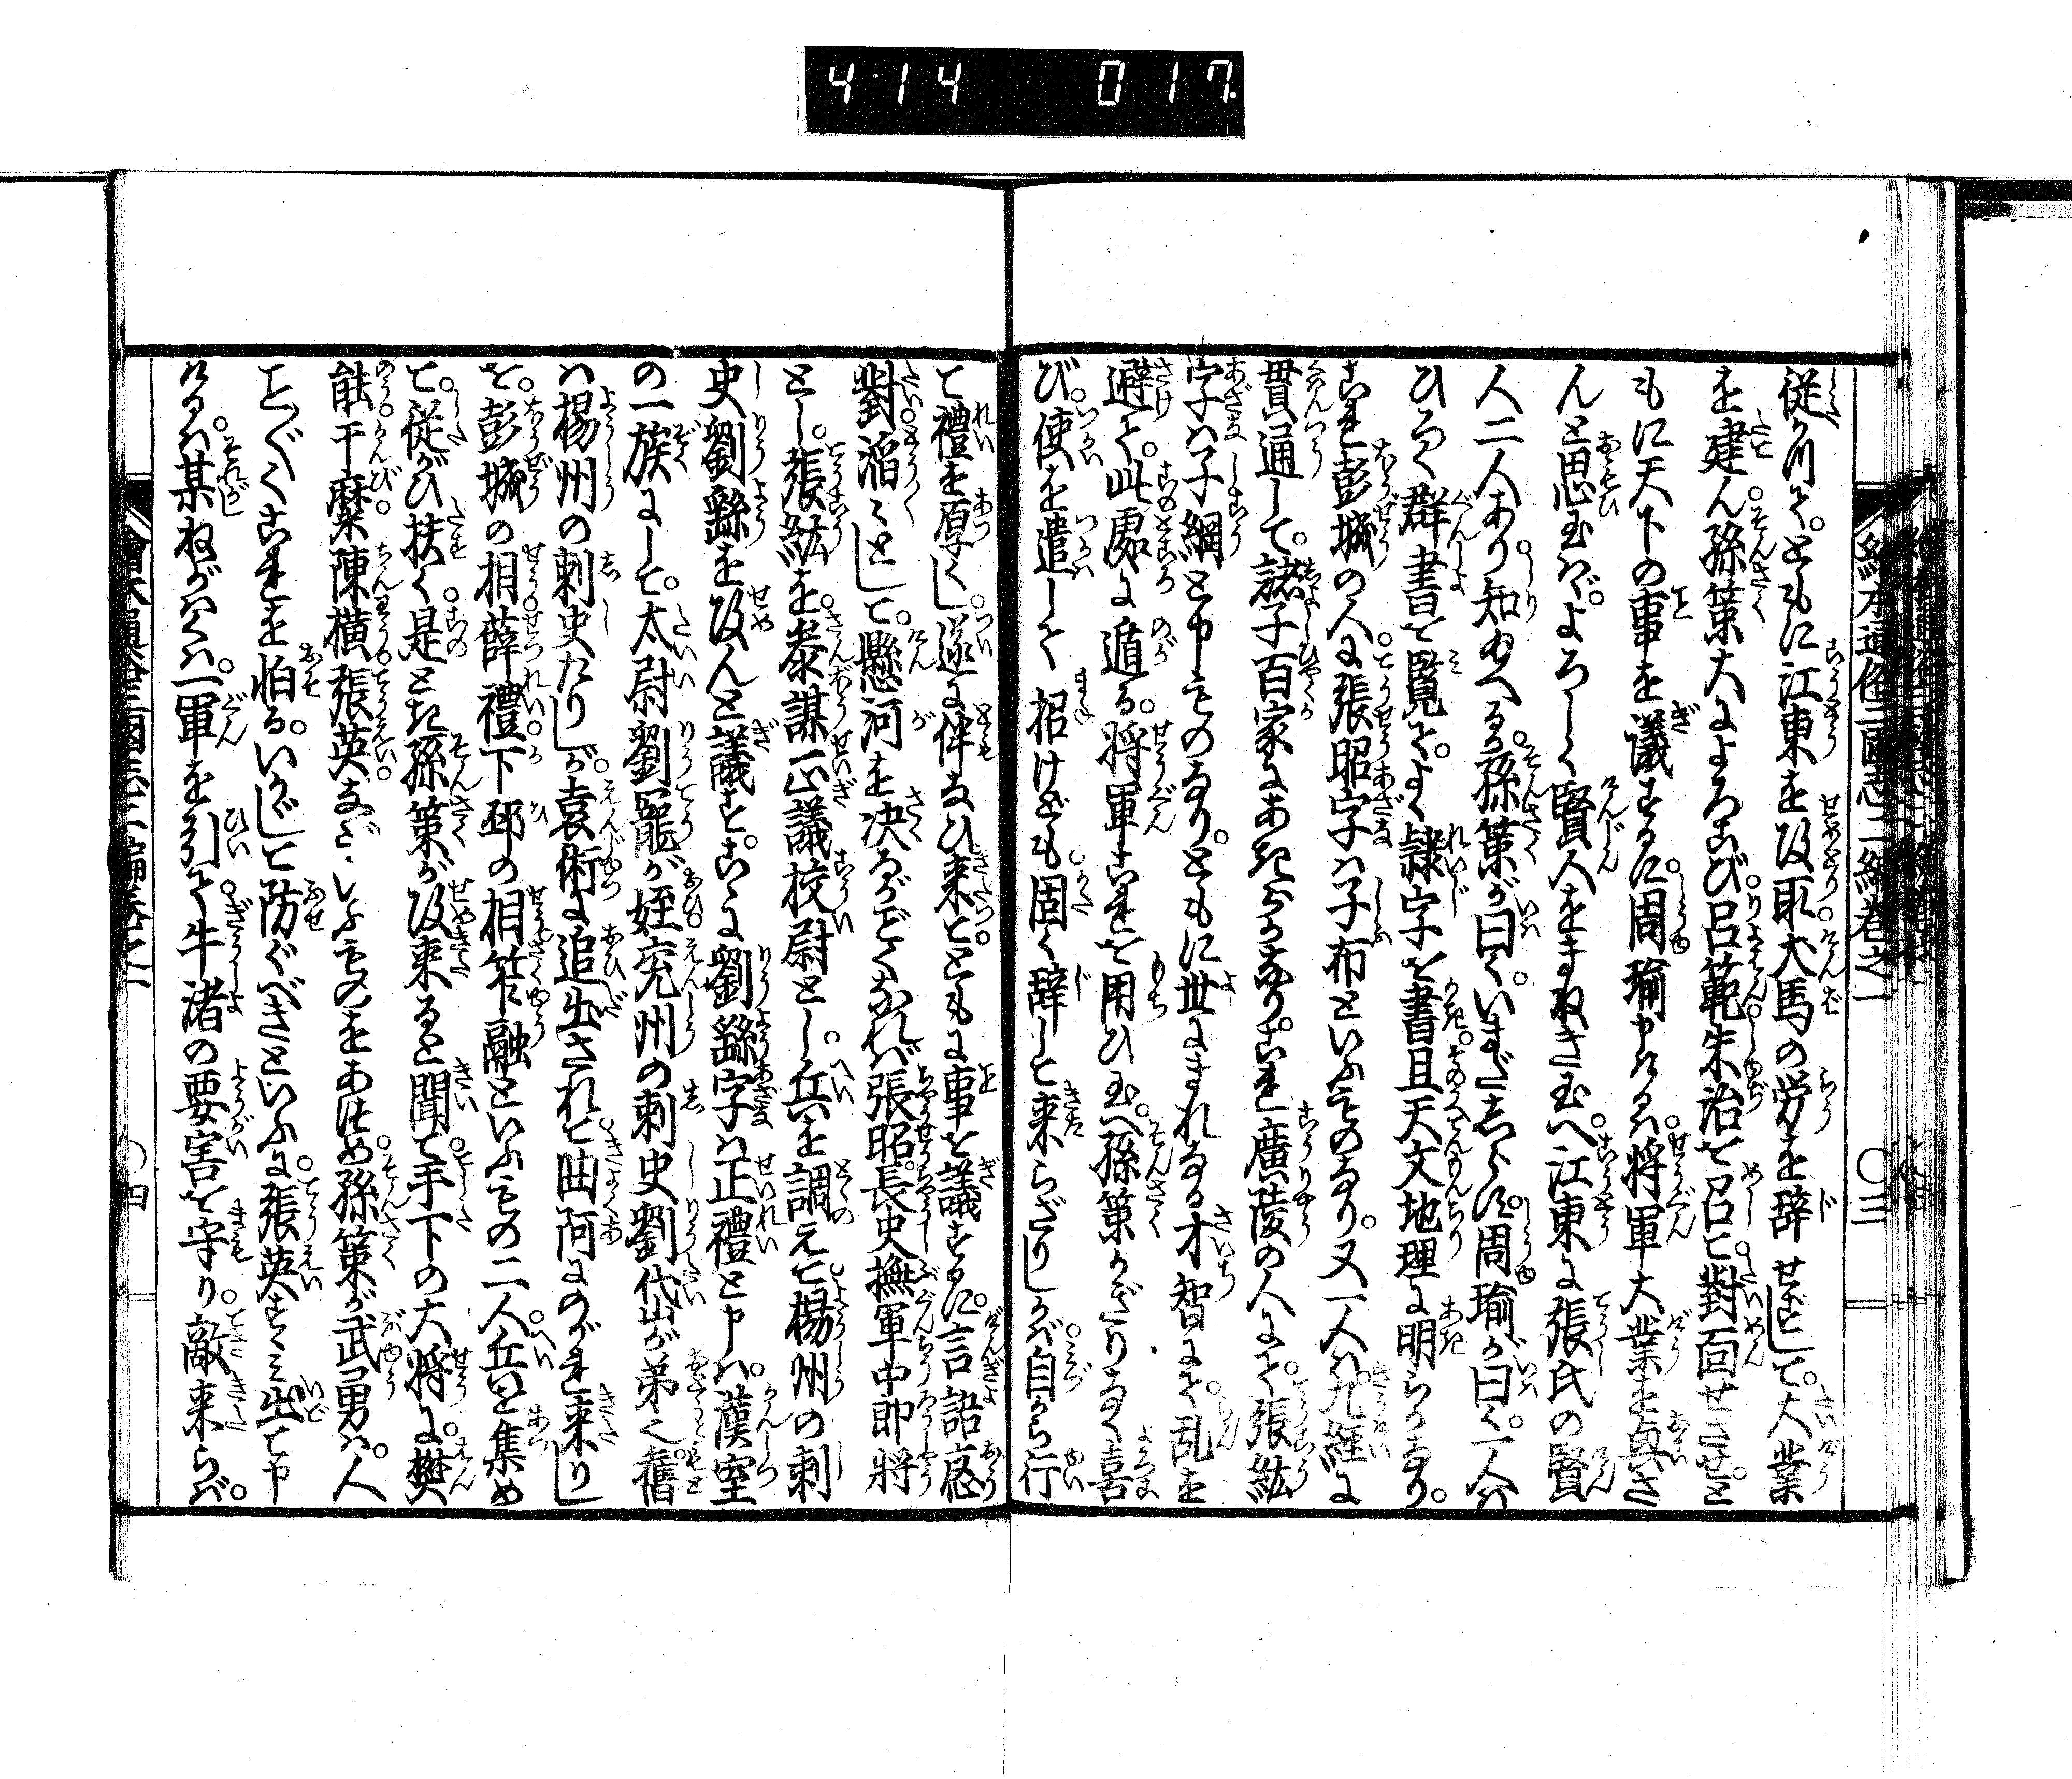 4·14 017.
絵本通俗三國志二編巻之一 〇三
従ひ川て。ともに江東を攻取。犬馬の労を辞せずして。大業
を建ん。孫策大によろこび。呂範朱治を召て。對面せさせ。と
もに天下の事を議するに。周瑜申けるハ。将軍大業を興さ
んと思ひ玉ハゞ。よろしく賢人をまねき玉へ。江東に張氏の賢
人二人あり知給へる。孫策が曰く。いまだしらず。周瑜が曰く。一人ハ
ひろく群書を覧て。よく隷字を書。且天文地理に明らかなり。
これ彭城の人に。張昭字ハ子布といふものなり。又一人ハ九経に
貫通して。諸子百家にあきらかなり。これ廣陵の人にて。張紘
字ハ子綱と申ものなり。ともに世にまれなる才智にて。乱を
避て。此處に遁る。将軍これを用ひ玉へ。孫策かぎりなく喜
び。使を遣して招けども。固く辞して来らざりしかバ。自から行
て禮を厚くし。遂に伴なひ来て。ともに事を議するに。言語應
對滔々として。懸河を決るがごとくなれバ。張昭を長史撫軍中郎将
とし。張紘を。参謀正議校尉とし。兵を調えて。楊州の刺
史劉繇を攻んと議す。こゝに劉繇字ハ正禮と申ハ。漢室
の一族にして。太尉劉寵が姪。兗州の刺史劉岱が弟也。舊
ハ楊州の刺史たりしが。袁術に追出されて。曲阿にのがれ来りし
を。彭城の相薛禮。下邳の相笮融といふもの二人。兵を集め
て。従がひ扶く。是とき孫策が攻来ると聞て。手下の大将に。樊
能于糜。陳横。張英。など、いふものをあつめ。孫策が武勇ハ。人
ことごとくこれを怕る。いかゞして防ぐべきといふに。張英すゝみ出て申
けるハ。某ねがハくハ。一軍を引て。牛渚の要害を守り。敵来らバ。
繪本通俗三國志二編巻之一 〇四